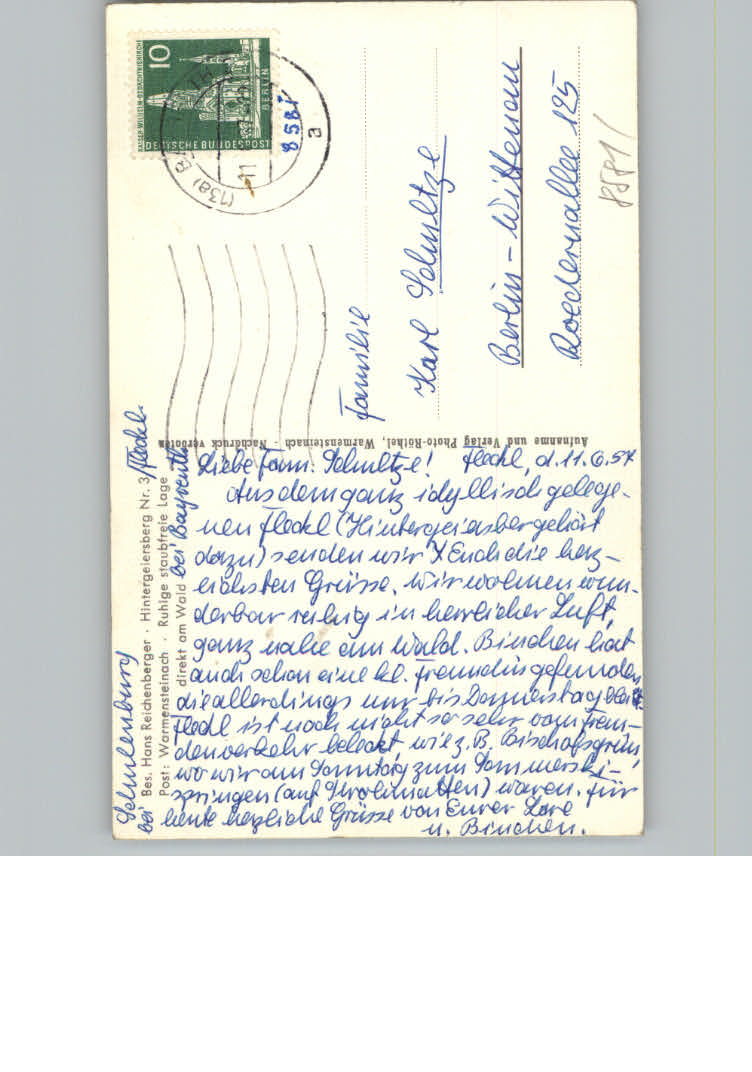 Liebe Fam. Schultze! Fleckl, d. 11.6.57
Aus dem ganz idyllisch gelege-
nen Fleckl (Hintergeiersberg gehört
dazu) senden wir Euch die herz-
lichsten Grüsse. Wir wohnen wun-
derbar ruhig in herrlicher Luft,
ganz nahe am Wald. Binchen hat
auch schon eine kl. Freundin gefunden
die allerdings nur bis Donnerstag
Fleckl ist noch nicht so sehr vom Frem-
denverkehr beleckt, wie z. B. Bischofsgrün,
wo wir am Sonntag zum Sommerski-
springen (auf Strohmatten) waren. Für
heute herzliche Grüsse von Eurer Lore
u. Binchen.
Schulenburg
bei Bes. Hans Reichenberger · Hintergeiersberg Nr. 3/Fleckl
Post: Warmensteinach · Ruhige staubfreie Lage
direkt am Wald bei Bayreuth
Aufnahme und Verlag Photo-Röthel, Warmensteinach · Nachdruck verboten
Familie
Karl Schultze
Berlin-Wittenau
Roedernallee 125
8581/
10
KAISER-WILHELM-GEDÄCHTNISKIRCHE
BERLIN
DEUTSCHE BUNDESPOST
8581
(13a)
11
a